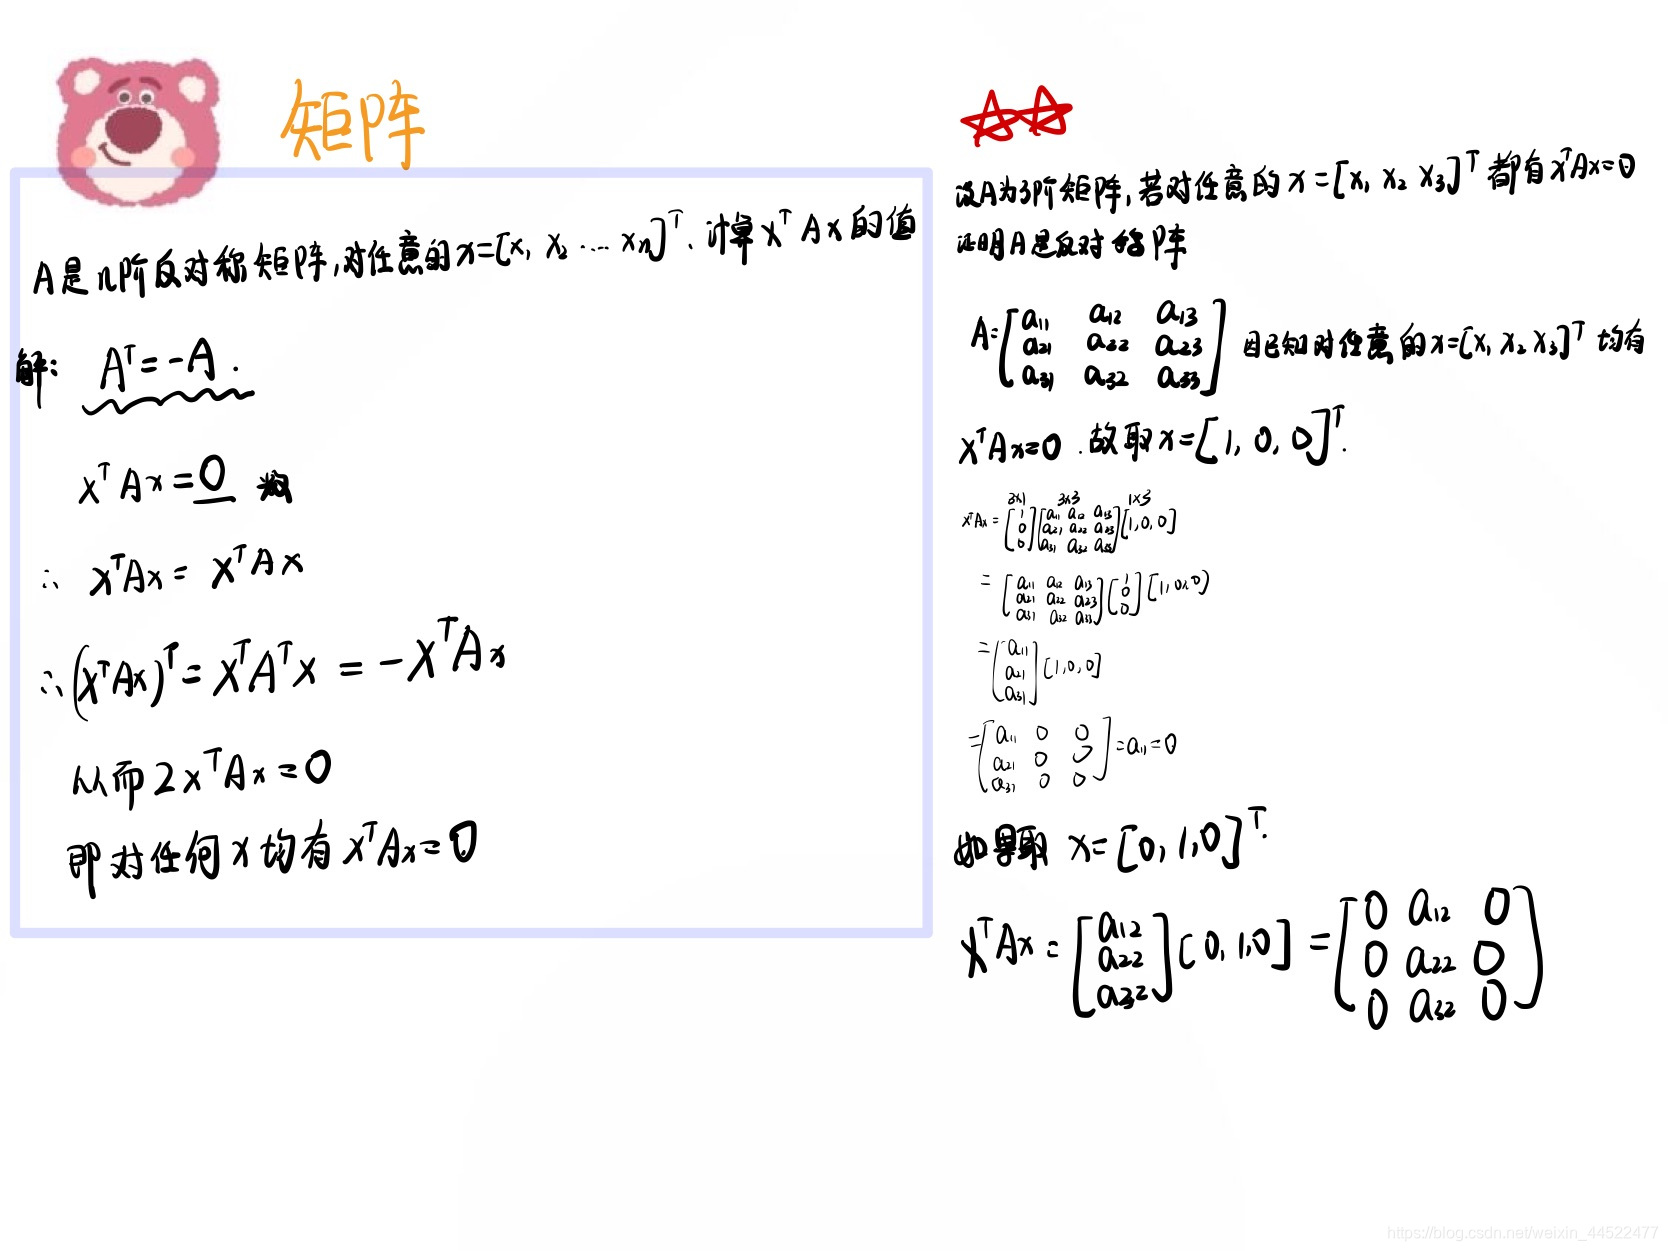 矩阵
A是n阶反对称矩阵,对任意的x=[x₁ x₂ … xₙ]ᵀ,计算xᵀAx的值
解: Aᵀ=-A.
xᵀAx=0 数
∴ xᵀAx= xᵀAx
∴(xᵀAx)ᵀ=xᵀAᵀx = -xᵀAx
从而2xᵀAx=0
即对任何x均有xᵀAx=0
设A为3阶矩阵,若对任意的x=[x₁ x₂ x₃]ᵀ都有xᵀAx=0
证明A是反对称阵
A=[a₁₁ a₁₂ a₁₃
a₂₁ a₂₂ a₂₃
a₃₁ a₃₂ a₃₃] 因已知对任意的x=[x₁ x₂ x₃]ᵀ均有
xᵀAx=0.故取x=[1,0,0]ᵀ.
3×1 3×3 1×3
xᵀAx=[1 a₁₁ a₁₂ a₁₃
0 a₂₁ a₂₂ a₂₃ [1,0,0]
0] a₃₁ a₃₂ a₃₃]
= [a₁₁ a₁₂ a₁₃ [1
a₂₁ a₂₂ a₂₃ 0 [1,0,0]
a₃₁ a₃₂ a₃₃] 0]
=[a₁₁
a₂₁ [1,0,0]
a₃₁]
=[a₁₁ 0 0
a₂₁ 0 0 =a₁₁=0
a₃₁ 0 0]
如果取 x=[0,1,0]ᵀ.
xᵀAx=[a₁₂ [0 a₁₂ 0
a₂₂ [0,1,0] = 0 a₂₂ 0
a₃₂] 0 a₃₂ 0]
https://blog.csdn.net/weixin_44522477